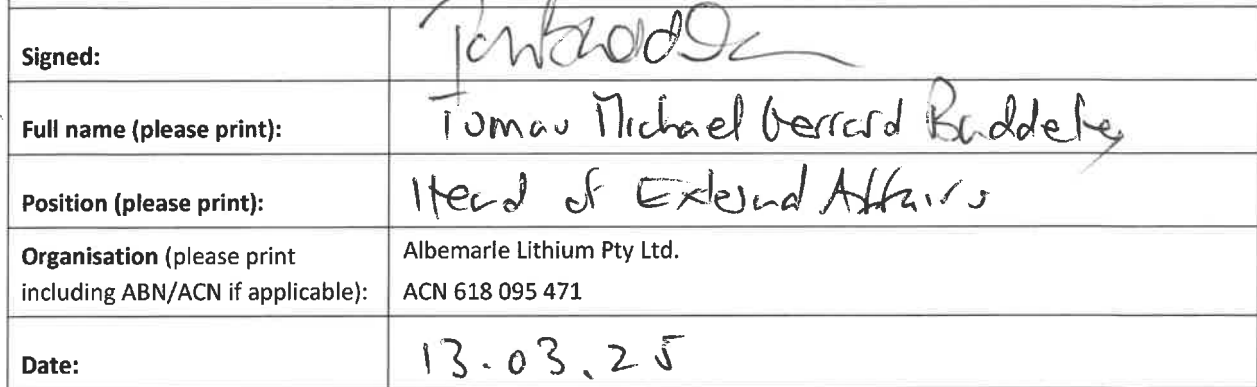 Signed:
Full name (please print): Tomas Michael Gerrard Baddeley
Position (please print): Head of External Affairs
Organisation (please print
including ABN/ACN if applicable):
Albemarle Lithium Pty Ltd.
ACN 618 095 471
Date: 13.03.25